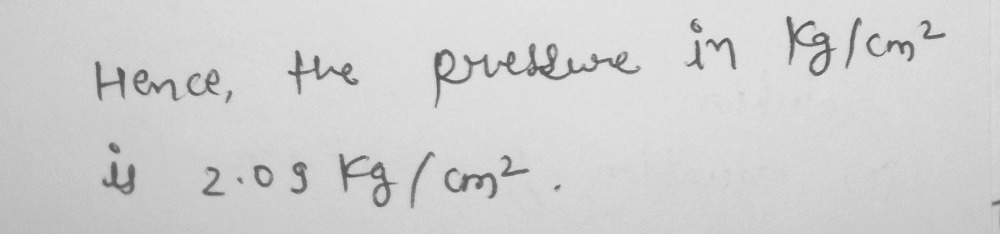 Hence, the pressure in Kg/cm²
is 2.09 Kg/cm².